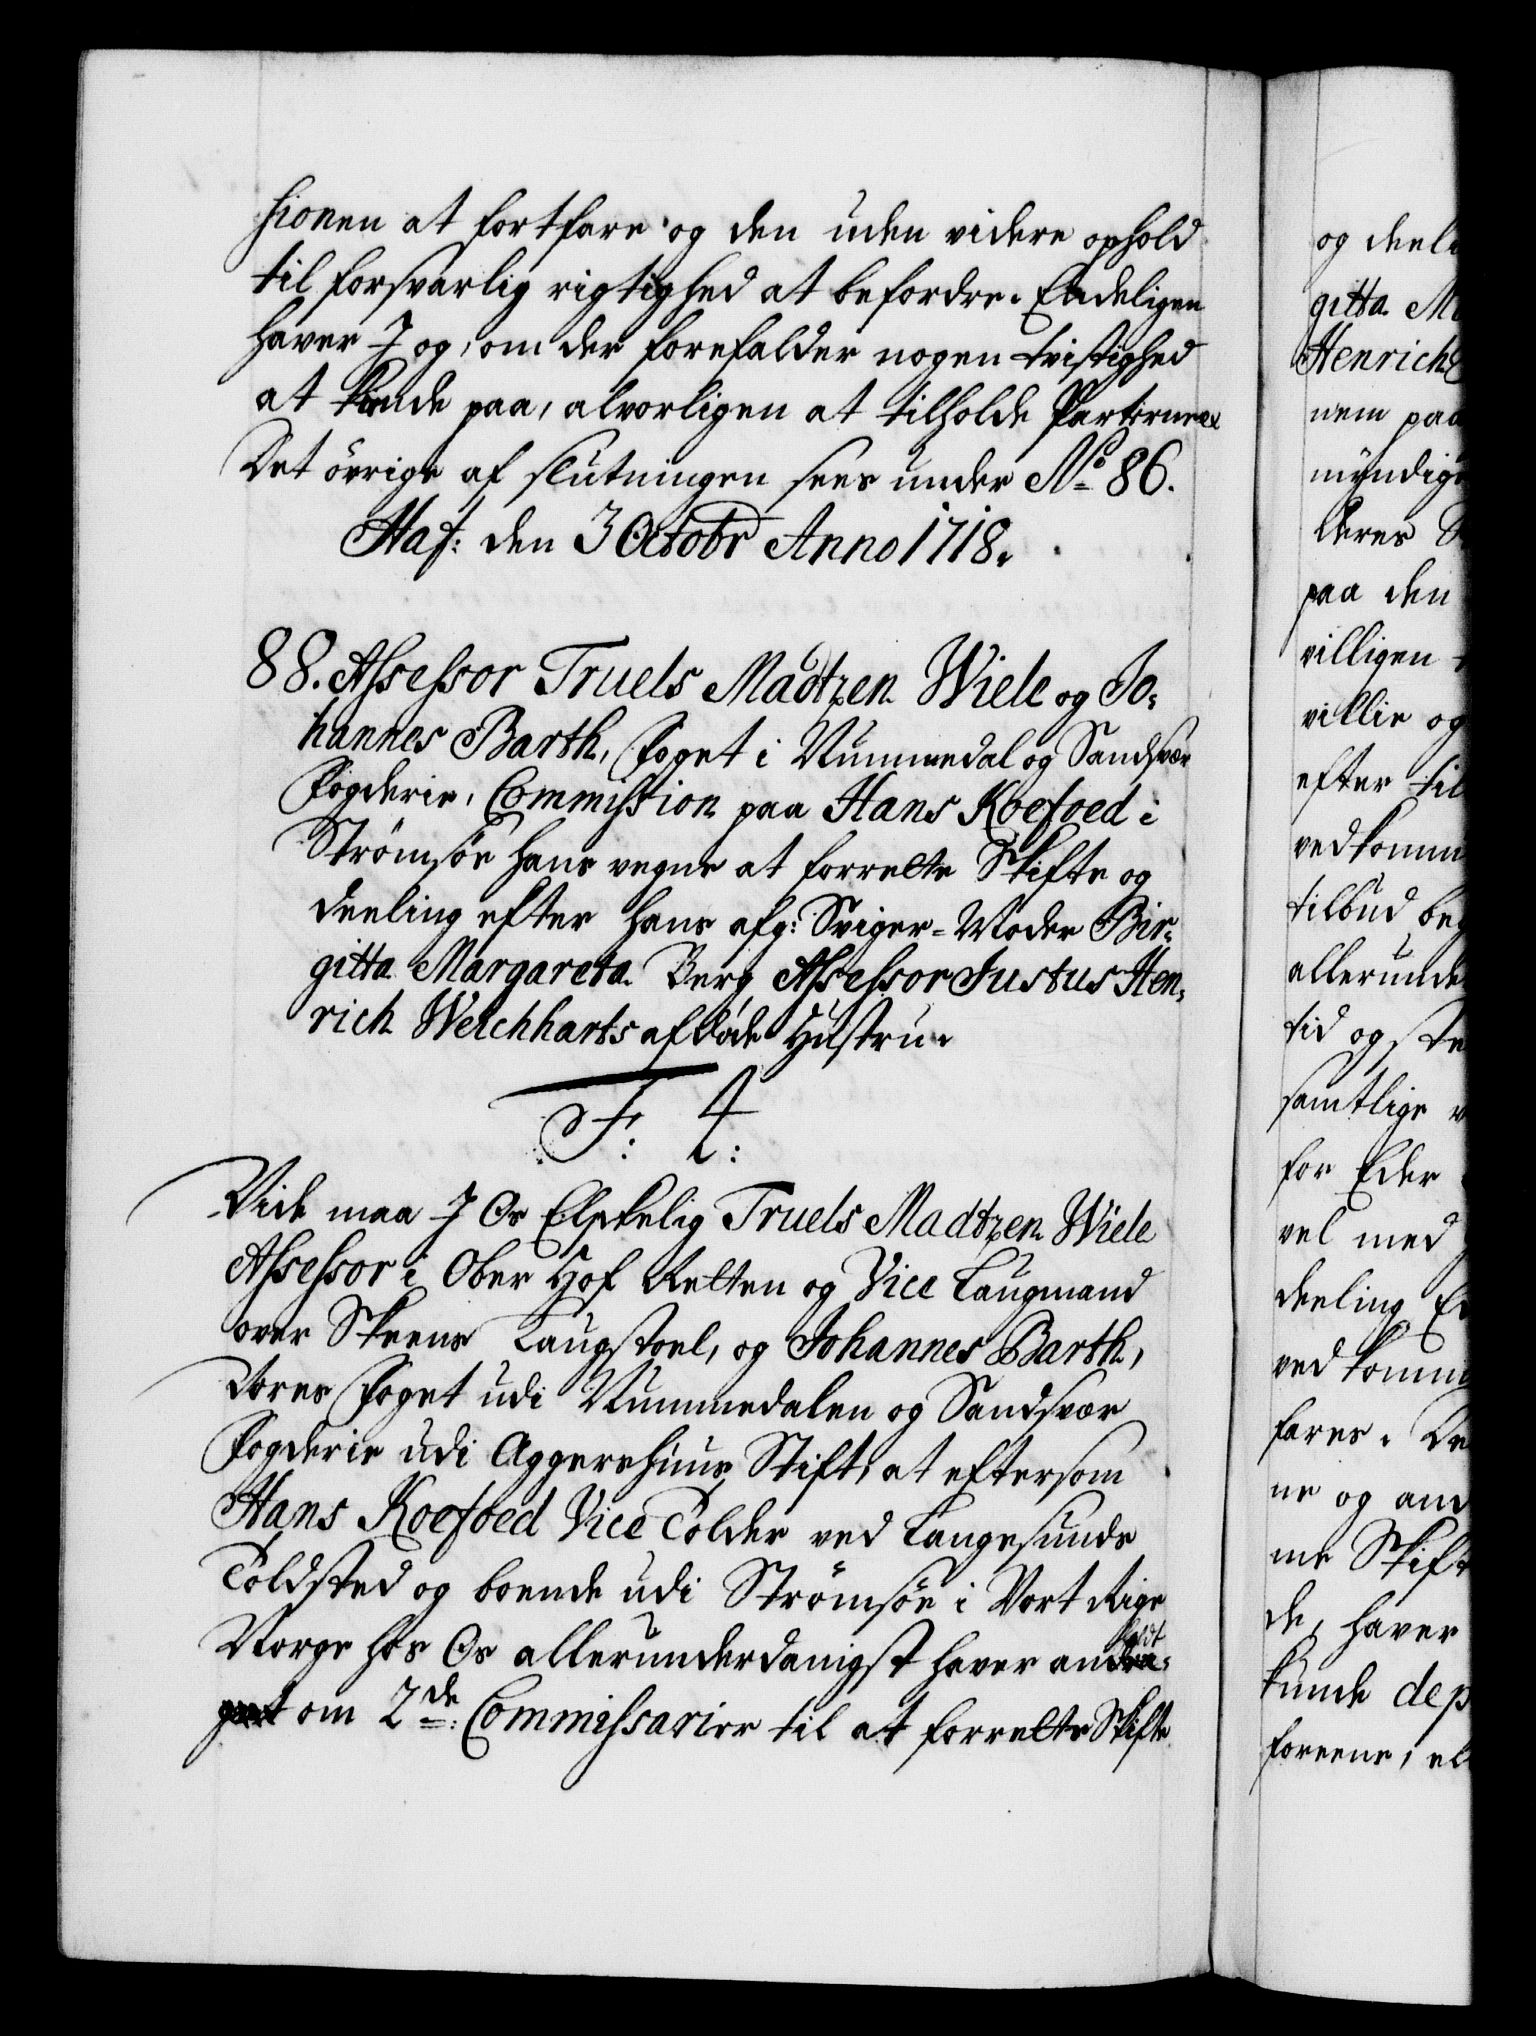 sionen at fortfare og den uden videre ophold
til forsvarlig rigtighed at befordre. Endeligen
haver I og, om der forefalder nogen tvistighed
at kiende paa, alvorligen at tilholde Parterne &
Det övrige af slutningen sees under No 86.
Haf: den 3 Octobr Anno 1718.
88. Assessor Truels Madtzen Wiele og Jo-
hannes Barth, Foget i Nummedal og Sandsver
Fogderie, Commission paa Hans Koefoed i
Strømsøe hans vegne at forrette Skifte og
deeling efter hans afg: Sviger-Moder Bir-
gitta Margareta Berg Assessor Justus Hen-
rich Weichharts afdøde Hustrue
F: 4:
Vide maa I Os Elskelig Truels Madtzen Wiele
Assessor i Ober Hof Retten og Vice Laugmand
over Skeens Laugstoel, og Johannes Barth,
Vores Foget udi Nummedalen og Sandsvær
Fogderie udi Aggershuus Stift, at eftersom
Hans Koefoed Vice Tolder ved Langesunds
Toldsted og boende udi Strömsöe i Vort Rige
Norge hos Os allerunderdanigst haver anholdt
om 2de: Commissarier til at forrette Skifte
og deel
gitta M
Henrich
nem paa
myndig
deres S
paa den
villigen
villie og
efter til
vedkomm
tilbud beg
allerunde
tid og ste
samtlige v
for Eder
vel med
deeling E
vedkomm
fares. De
ne og and
me Skift
de, haver
kunde dep
foreene, el